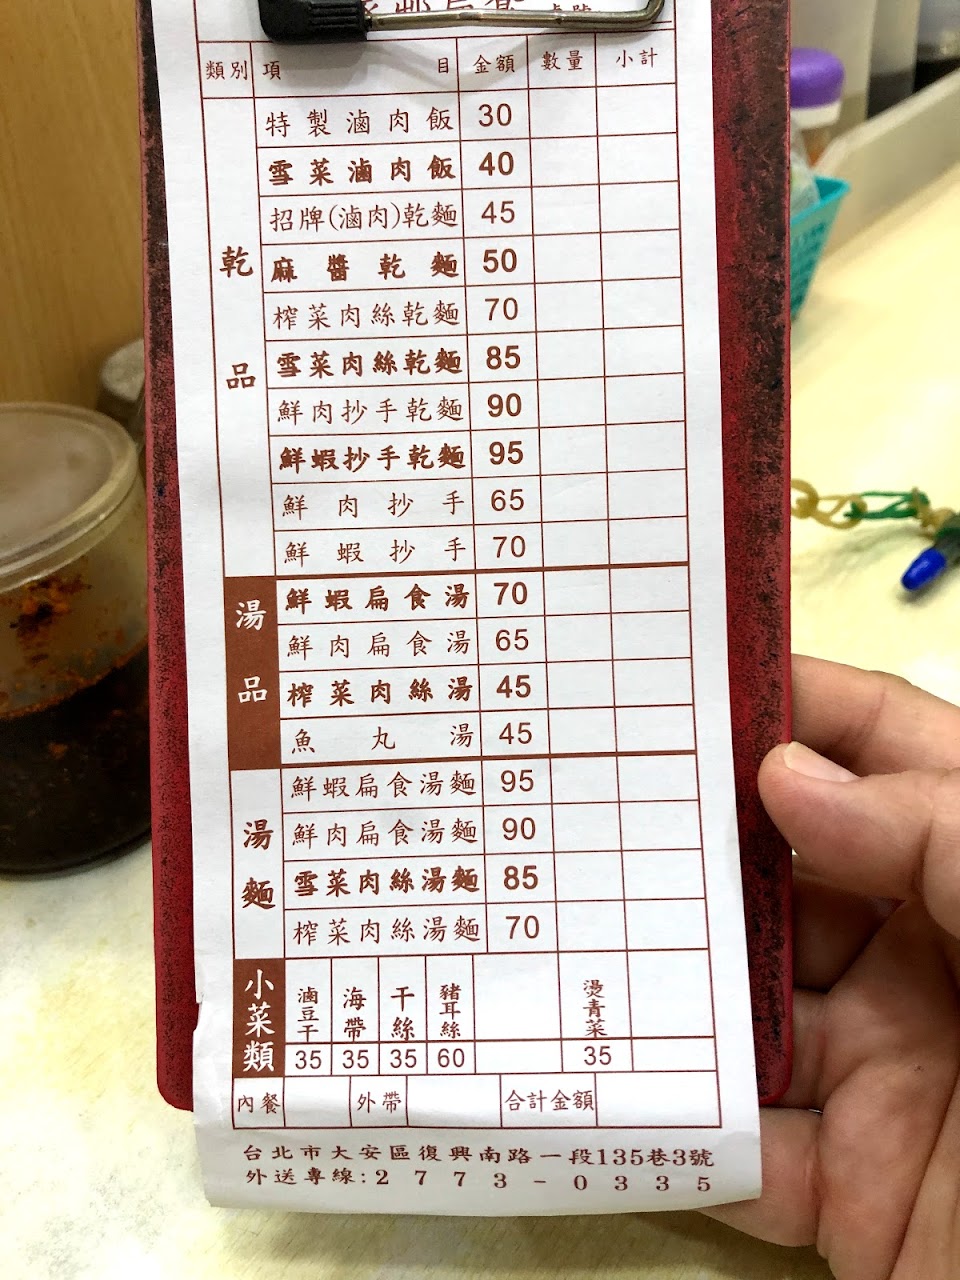 類別 項目 金額 數量 小計
乾品
特製滷肉飯 30
雪菜滷肉飯 40
招牌(滷肉)乾麵 45
麻醬乾麵 50
榨菜肉絲乾麵 70
雪菜肉絲乾麵 85
鮮肉抄手乾麵 90
鮮蝦抄手乾麵 95
鮮肉抄手 65
鮮蝦抄手 70
湯品
鮮蝦扁食湯 70
鮮肉扁食湯 65
榨菜肉絲湯 45
魚丸湯 45
湯麵
鮮蝦扁食湯麵 95
鮮肉扁食湯麵 90
雪菜肉絲湯麵 85
榨菜肉絲湯麵 70
小菜類
滷豆干 海帶 干絲 豬耳絲 燙青菜
35 35 35 60 35
內餐 外帶 合計金額
台北市大安區復興南路一段135巷3號
外送專線:2773-0335